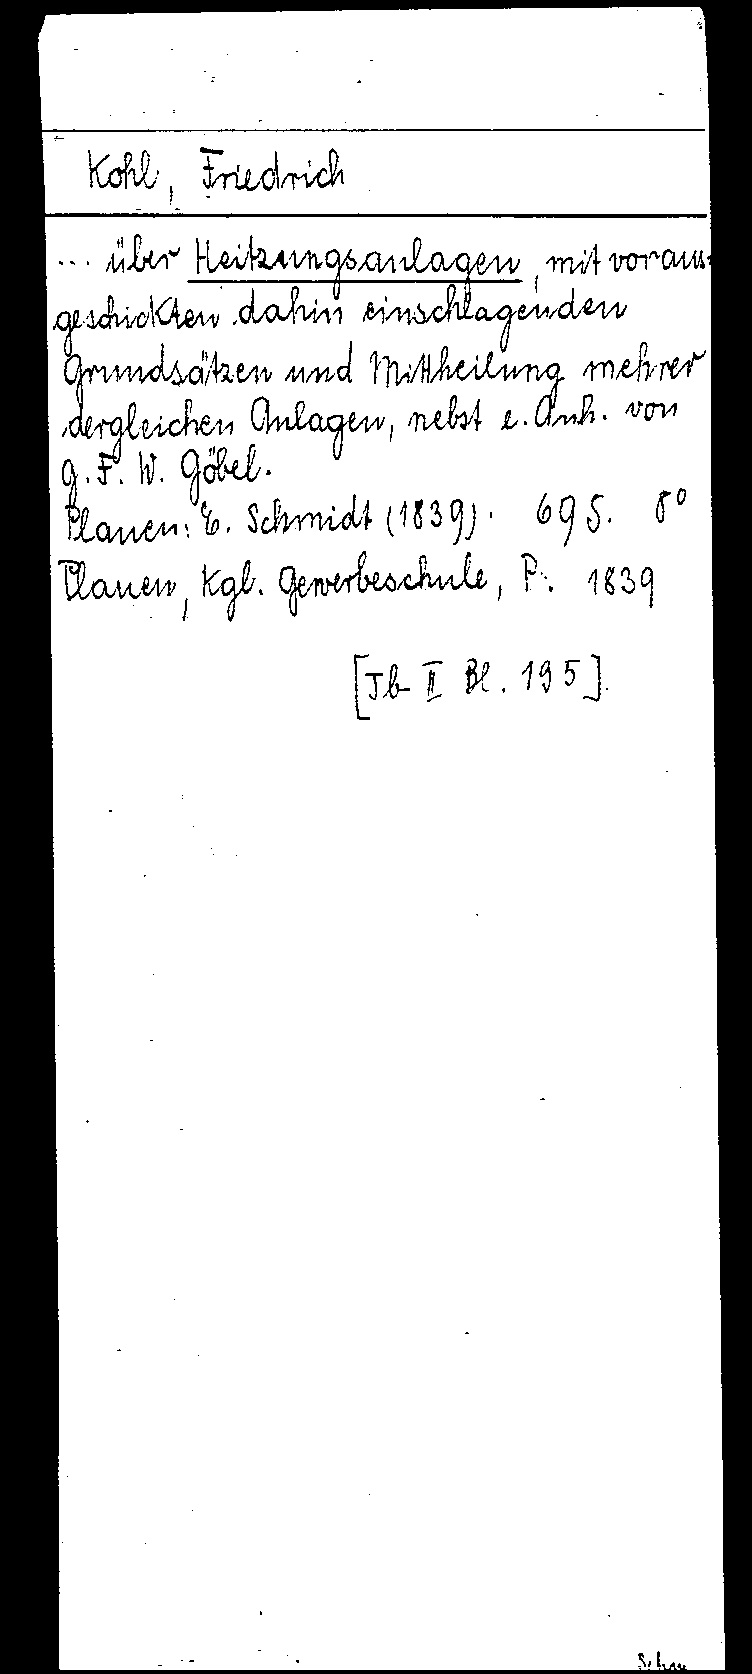 Kohl, Friedrich
... über Heitzungsanlagen, mit voraus-
geschickten dahin einschlagenden
Grundsätzen und Mittheilung mehrer
dergleichen Anlagen, nebst e. Anh. von
G. F. W. Göbel.
Plauen: E. Schmidt (1839). 69 S. 8°
Plauen, Kgl. Gewerbeschule, P. 1839
[Jb II Bl. 195].